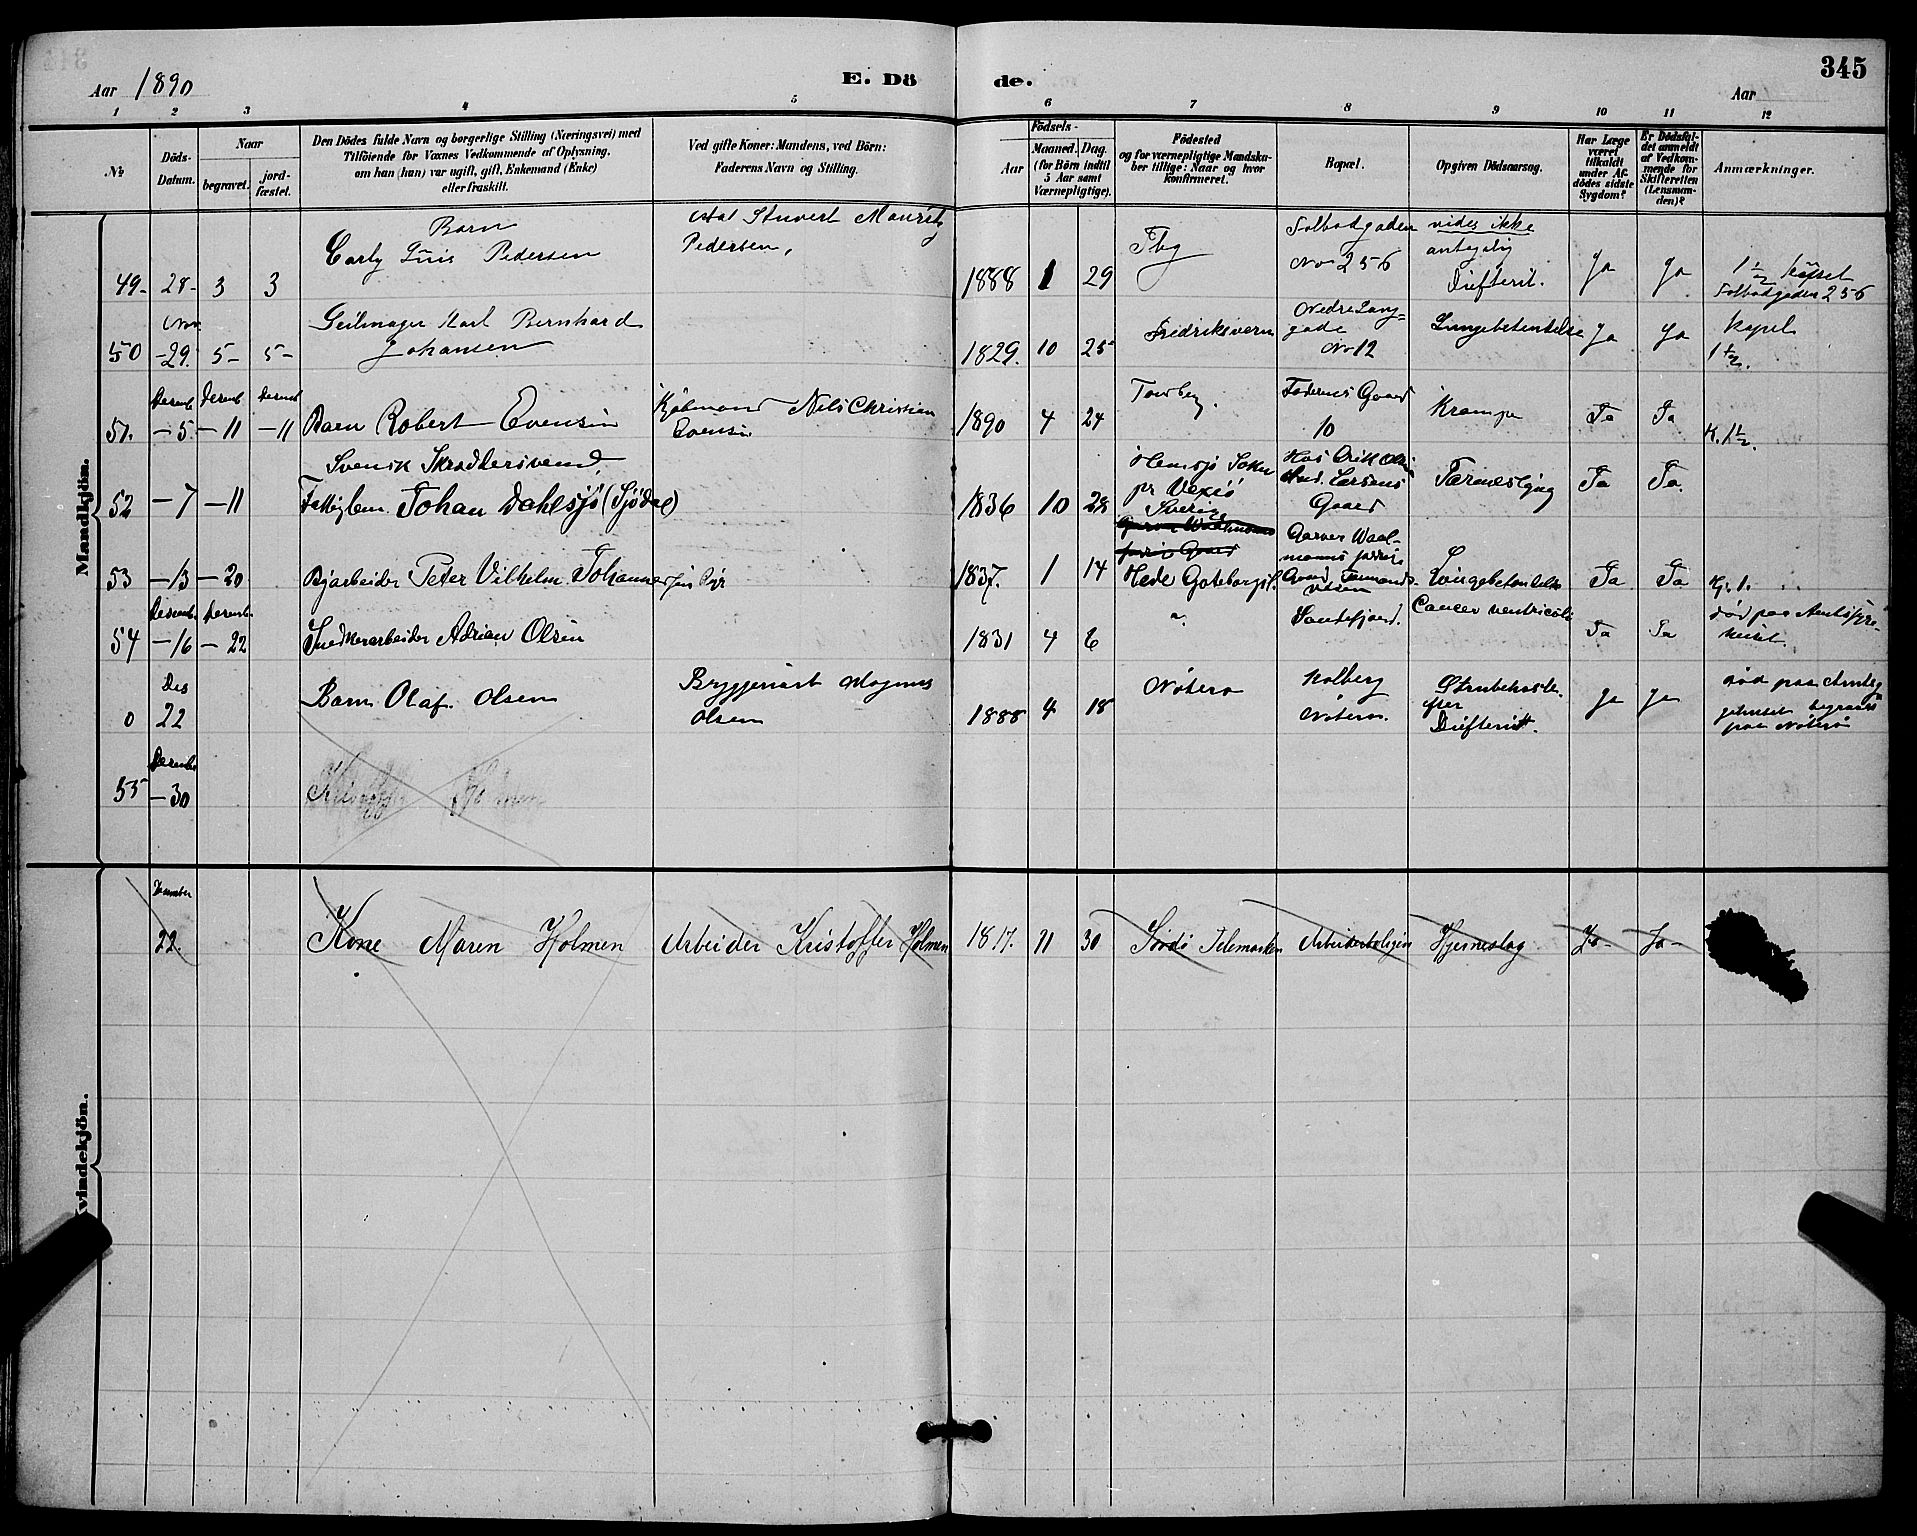 Aar 1890
E. Dö de.
345
Aar
1 2 3 4 5 6 7 8 9 10 11 12
№
Döds-Datum.
Naar
begravet.
jord-fæstet.
Den Dödes fulde Navn og borgerlige Stilling (Næringsvei) med
Tilföiende for Voxnes Vedkommende af Oplysning,
om han (hun) var ugift, gift, Enkemand (Enke)
eller fraskilt.
Ved gifte Koner: Mandens, ved Börn:
Faderens Navn og Stilling.
Födsels-
Aar
Maaned. Dag.
(for Börn indtil
5 Aar samt
Værnepligtige).
Födested
og for værnepligtige Mandska-
ber tillige: Naar og hvor
konfirmeret.
Bopæl.
Opgiven Dödsaarsag.
Har Læge
været
tilkaldt
under Af-
dödes sidste
Sygdom?
Er Dödsfal-
det anmeldt
af Vedkom-
mende for
Skifteretten
(Lensman-
den)?
Anmærkninger.
Mandkjön.
Barn
Pedersen
Pedersen,
49- 28- 3 3
1888 1 29
Tbg
No 256
vides ikke
antagelig
Difterit.
Ja
Ja
256
Nov.
50 -29. 5- 5-
Seilmager Karl Bernhard
Johansen
1829. 10 25
Fredriksvern
Nedre Lang=
gade
No 12
Lungebetendelse
Ja
Ja
Kapel
1½.
Decemb Decemb Decemb
51. -5 -11 -11
Barn Robert Evensen
Kjøbmand Nils Christian
Evensen
1890 4 24
Tønsberg.
Faderens Gaard
10
Krampe
Ja
Ja
K. 1½.
Svensk Skræddersvend,
52 -7 -11
Fattiglem Johan Dahlsjö (Sjödal)
1836 10 28
pr Vexiö
Sverige
Larsens
Gaard
Ja
Ja.
53 -13 -20
Byarbeider Peter Vilhelm Johannes
1837. 1 14
Hede Goteborgsl.
Garver Waal-
manns forrige
Gaard
Lungebetendelse
Ja
Ja
Kj. 1.
Decemb Decemb
54 -16 -22
Snedkerarbeider Adrian Olsen
1831 4 6
Sandefjord.
Cancer ventriculi
Ja
Ja
død paa Amtssyge-
huset.
Des
0 22
Barn Olaf Olsen
Bryggeriarb Magnus
Olsen
1888 4 18
Nøterø
Kolberg
Nøterø.
Strubehoste
efter
Difterit.
Ja
Ja
død paa Amtssy
gehuset begravet
paa Nøterø
Decemb
55 -30
Kvindekjön.
December
22.
Kone Maren Holmen
Arbeider Kristoffer Holmen
1817. 11 30
Telemarken
Arbeiderboligen
Hjerneslag
Ja
Ja-